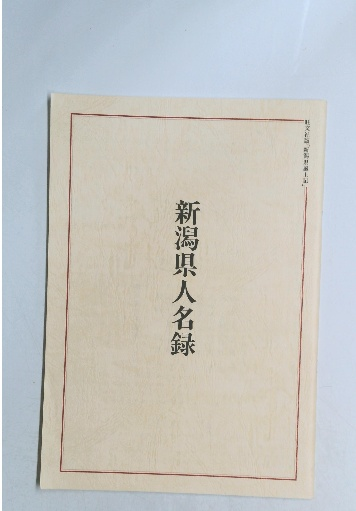 新潟県人名録